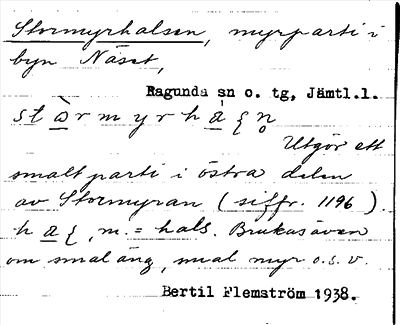 Stormyrhalsen, myrparti i
byn Näset,
Ragunda sn o. tg, Jämtl.l.
st ȧ̱ r m y r h ȧ̱ ɭ n̥
Utgör ett
smalt parti i östra delen
av Stormyran (siffr. 1196).
h a̱ ɭ, m. = hals. Brukas även
om smal äng, smal myr o.s.v.
Bertil Flemström 1938.